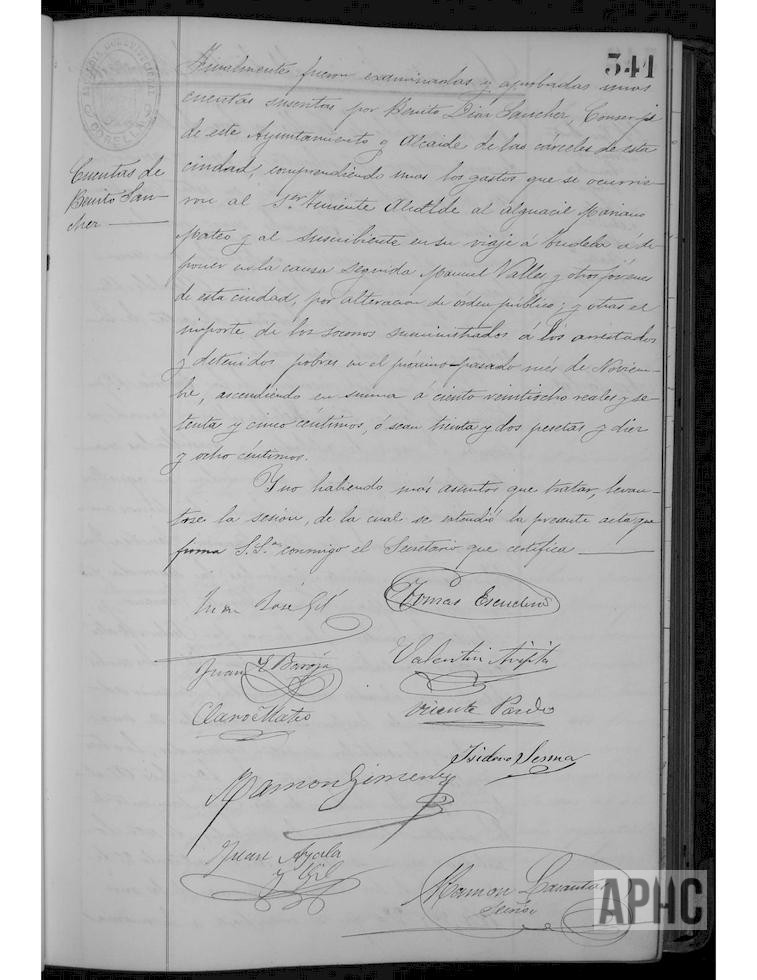 341
ALCALDIA CONSTITUCIONAL
CORELLA
Finalmente fueron examinadas y aprobadas unas
cuentas suscritas por Benito Diaz Sancher, Conserje
de este Ayuntamiento y Alcaide de las cárceles de esta
ciudad, comprendiendo unas los gastos que se ocurrie-
ron al Sr. Teniente Alcalde al alguacil Mariano
Mateo y al suscribiente en su viaje á Tudela á de-
poner en la causa seguida Manuel Valles y otros jóvenes
de esta ciudad, por alteracion de órden público; y otras el
importe de los socorros suministrados á los arrestados
y detenidos pobres en el próximo pasado més de Noviem-
bre, ascendiendo en suma á ciento veintiocho reales y se-
tenta y cinco céntimos, ó sean treinta y dos pesetas y diez
y ocho céntimos.
Y no habiendo más asuntos que tratar, levan-
tose la sesión, de la cual se extendió la presente acta que
firma S.S.ª conmigo el Secretario que certifica
Cuentas de
Benito San-
cher
Juan José Gil
Tomas Escudero
Juan Y. Baroja
Valentin
Claro Mateo
Vicente Pardo
Isidoro Sesma
Ramon Gimenez
Juan Ayala
y Gil
Ramon
APHC